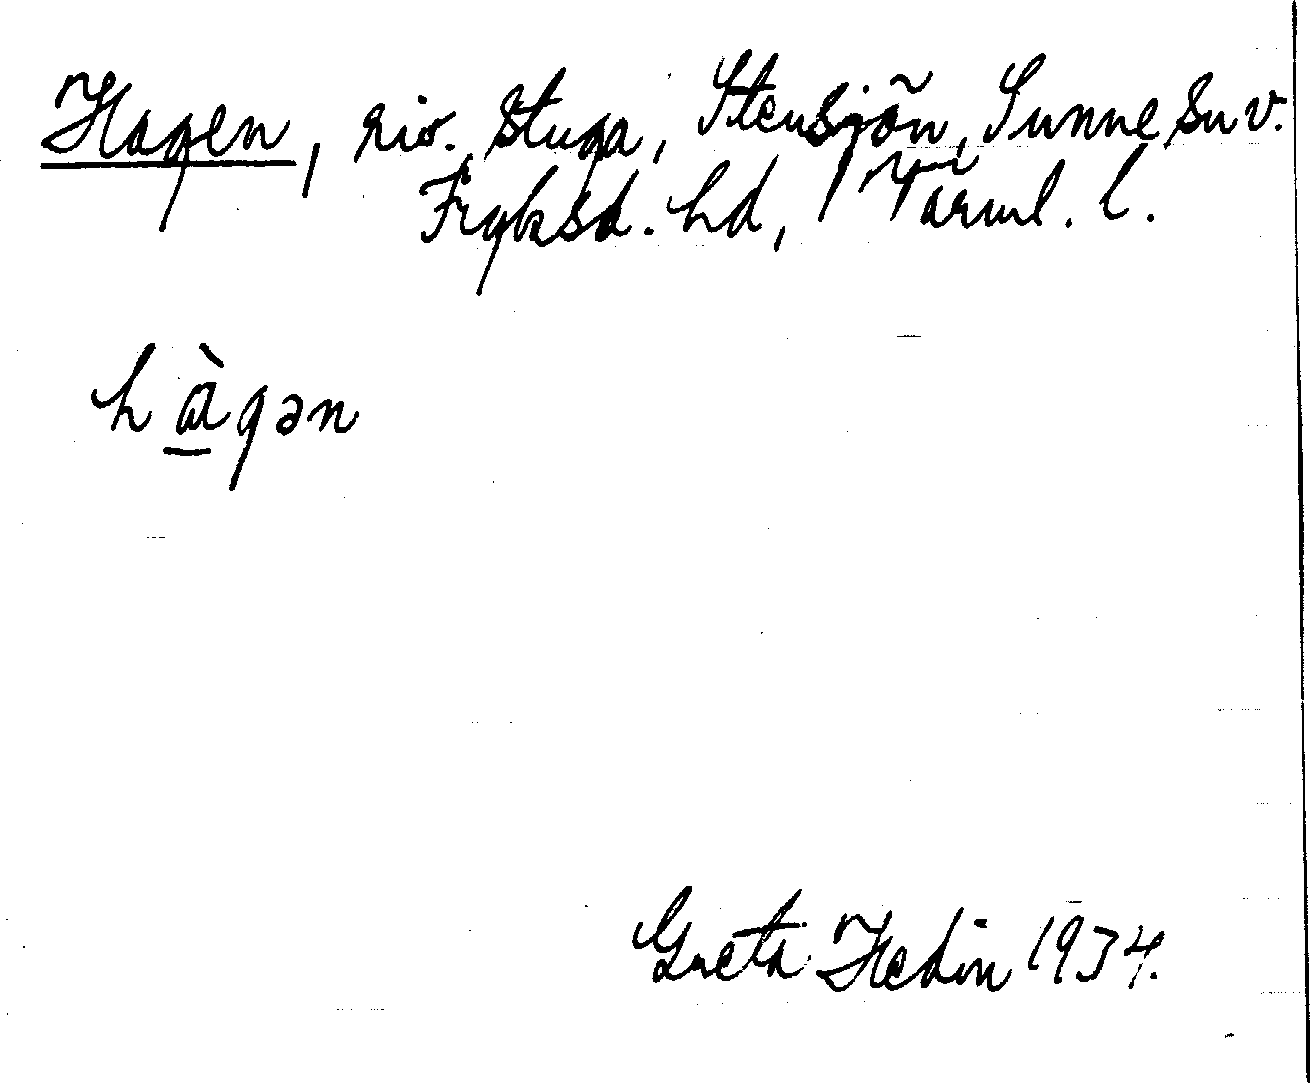 Hagen, riv. stuga, Stensjön, Sunne sn v.
Fryksd. hd, Värml. l.
hàgən
Greta Hedin 1934.